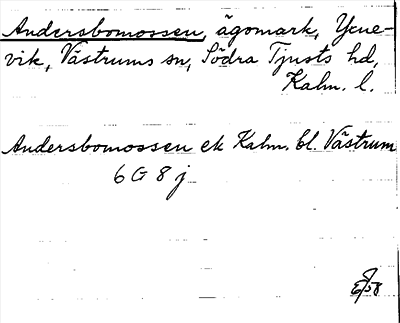 Andersbomossen, ägomark, Yxne-
vik, Västrums sn, Södra Tjusts hd,
Kalm. l.
Andersbomossen ek Kalm. bl. Västrum
6 G 8 j